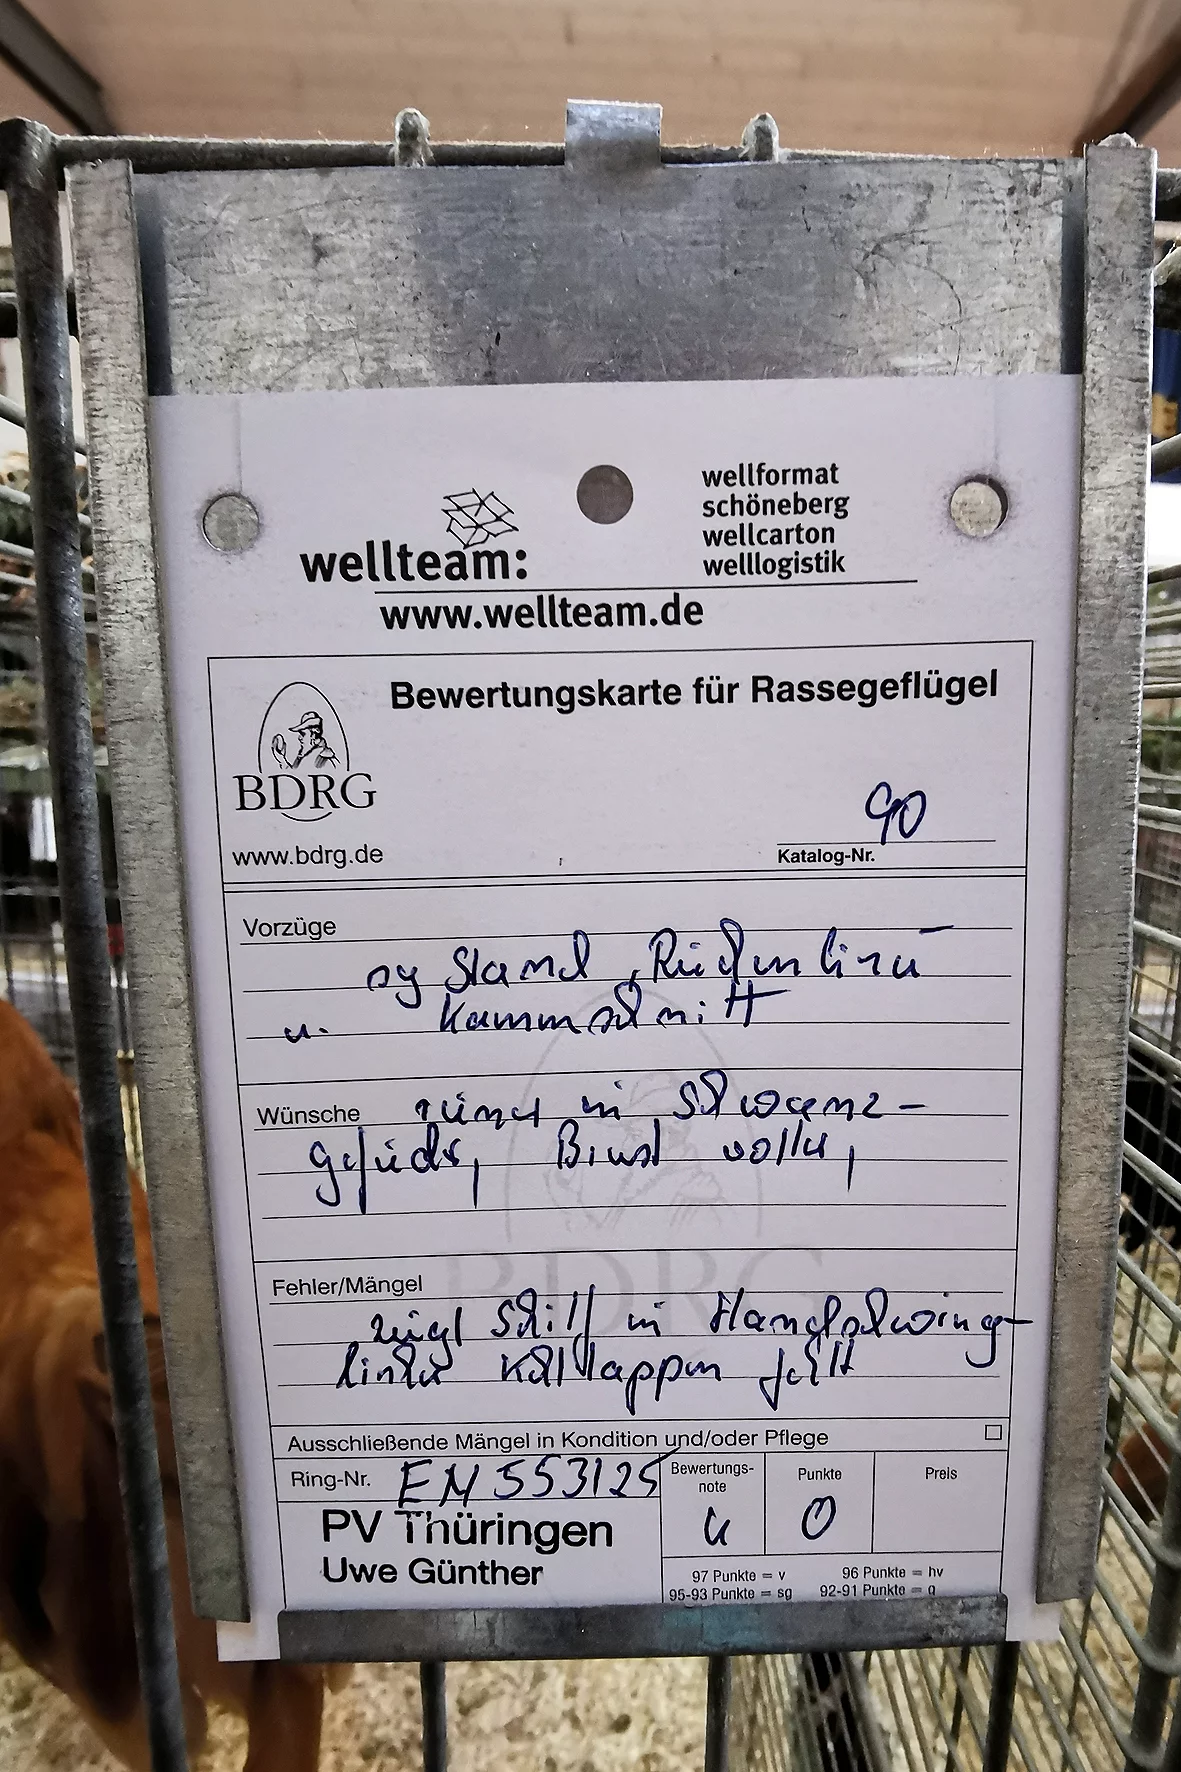 wellteam:
www.wellteam.de
wellformat
schöneberg
wellcarton
welllogistik
Bewertungskarte für Rassegeflügel
BDRG
www.bdrg.de
90
Katalog-Nr.
Vorzüge
sg Stand, Rückenlinie
u. Kammschnitt
Wünsche in Schwanz-
gefieder, Brust voller,
Fehler/Mängel
zeigt Schilf in Handschwing-
linker Kehllappen fehlt
Ausschließende Mängel in Kondition und/oder Pflege
Ring-Nr. EN 553125
PV Thüringen
Uwe Günther
Bewertungs-
note
u
Punkte
0
Preis
97 Punkte = v 96 Punkte = hv
95-93 Punkte = sg 92-91 Punkte = g
BDRG